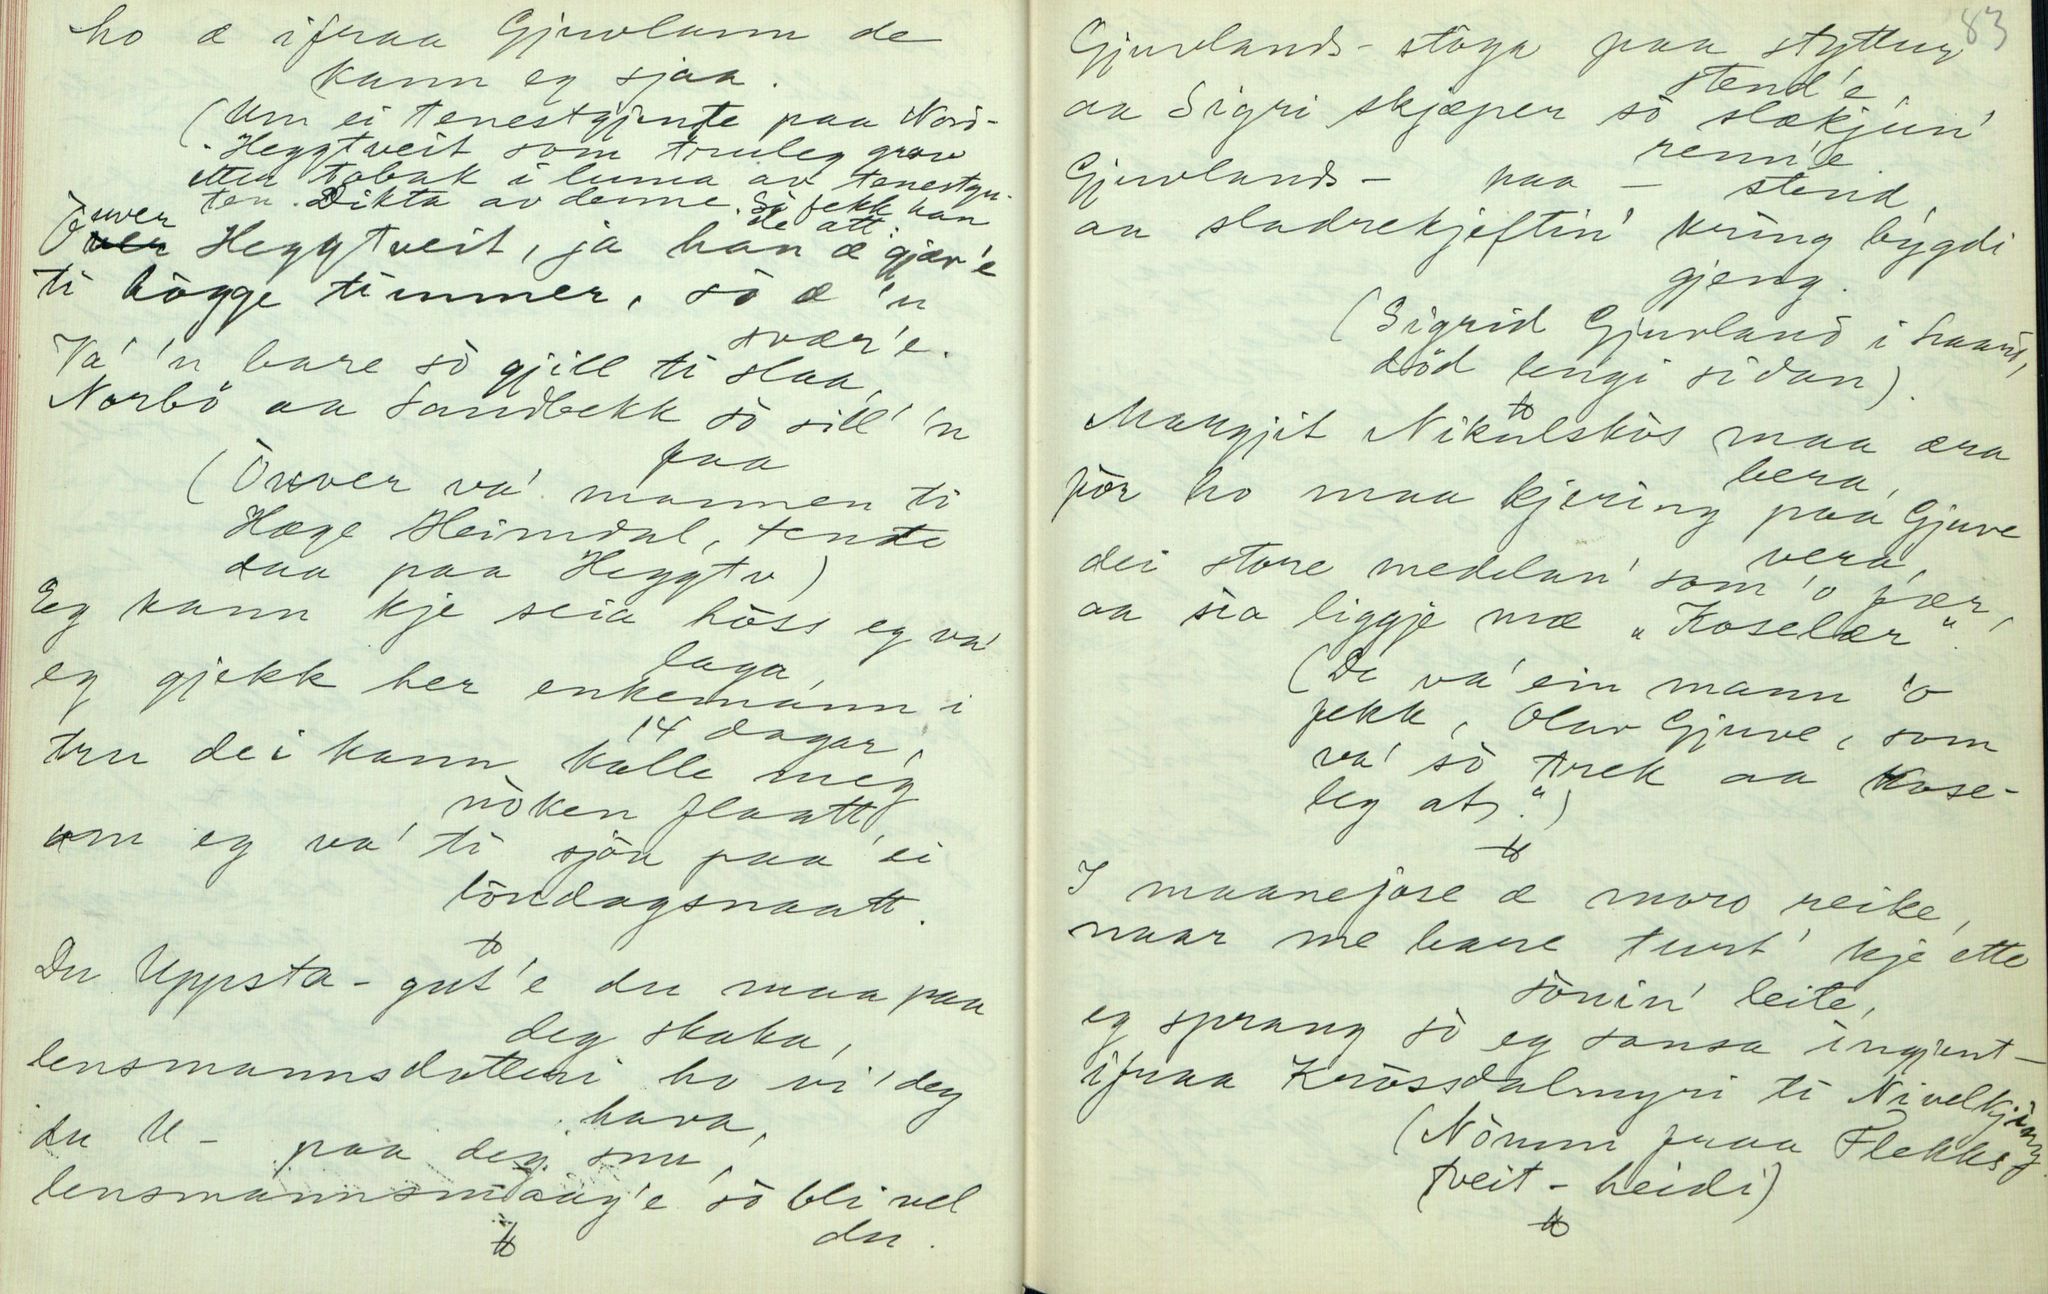 ho æ ifraa Gjuvlann de
kann eg sjaa.
(Um ei tenestgjente paa Nord-
-Heggtveit som truleg grov
etter tobak i luma av tenestgu-
ten. Dikta av denne. So fekk han
de att.
Òuver Heggtveit, ja han æ gjæv'e
ti hògge timmer, so æ 'n
svær'e.
Va' 'n bare so gjill ti slaa,
Norbö aa Sandbekk so sill' 'n
paa
(Òuver va' mannen ti
Hæge Heimdal, tente
daa paa Heggtv)
Eg kann kje seia höss eg va'
laga,
eg gjekk her enkemann i
14 dagar,
tru dei kann kalle meg
nòken flaatt,
um eg va' ti sjöa paa ei
löndagsnaatt.
Du Uppsta-gut'e du maa paa
deg skaka,
lensmannsdotteri ho vi' deg
hava,
du U- paa deg snu,
lensmannsmaag'e so bli vel
du.
83
Gjuvlands-stòga paa styttur
stend'e,
aa Sigri skjæper so slækjun'
renn'e
Gjuvlands- paa - stend,
aa sladrekjeftin' kring bygdi
gjeng.
(Sigrid Gjuvland i Haara,
död lengi sidan).
Margjit Nikulskòs maa æra
bera,
fòr ho maa kjering paa Gjuve
vera,
dei store medelan' som 'o fær,
aa sia liggje mæ "Koselær".
(De va' ein mann 'o
fekk, Olav Gjuve, som
va' so trek aa "kose-
leg at".)
I maanejose æ moro reike,
naar me bare turt' kje ette
sònin' leite,
eg sprang so eg sansa ingjent-
ifraa Kròssdalmyri ti Nivelkjinn
(Nömn fraa Flekks-
tveit-heidi)